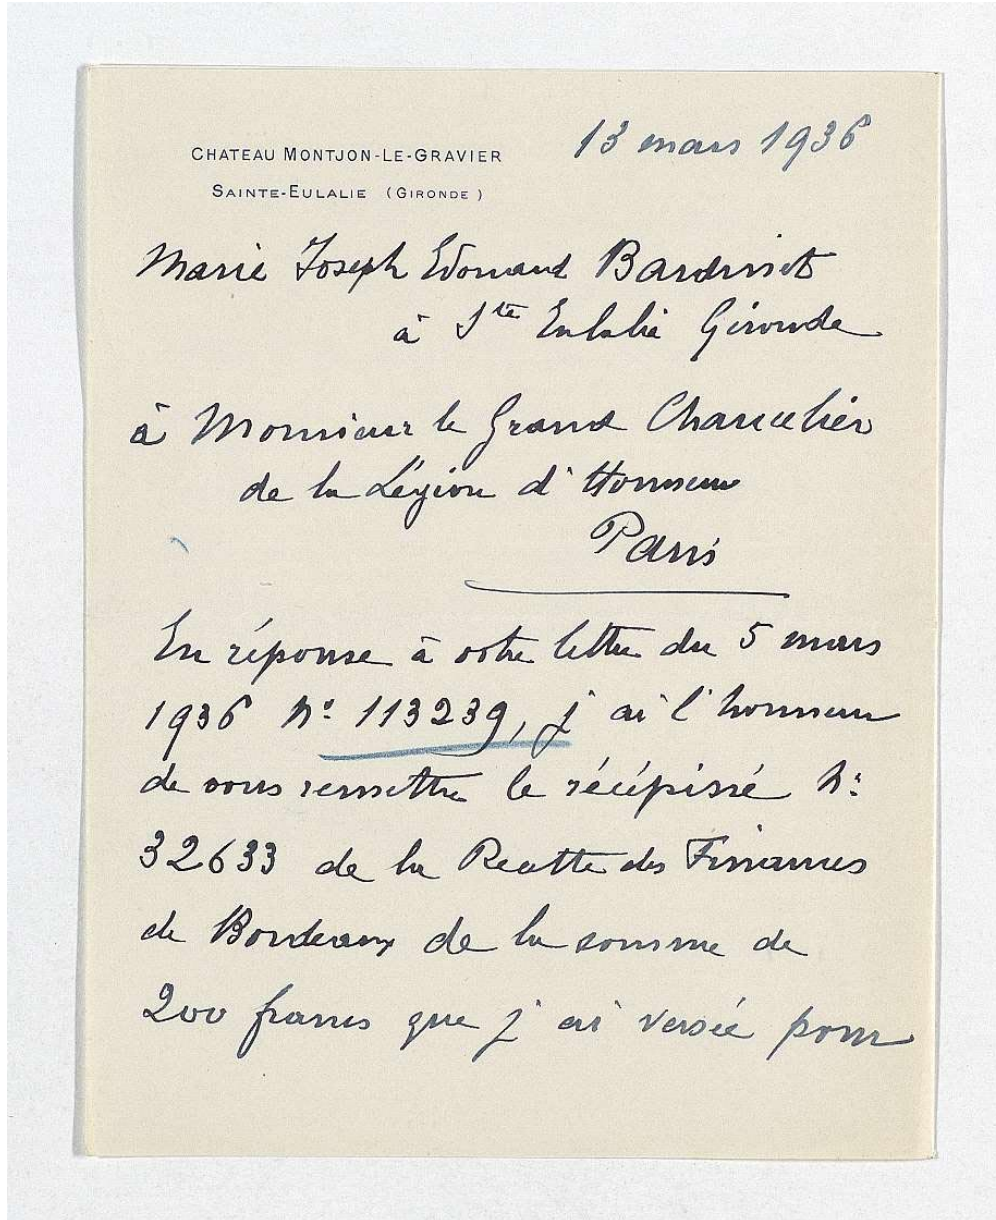 CHATEAU MONTJON-LE-GRAVIER
SAINTE-EULALIE (GIRONDE)
13 mars 1936
Marie Joseph Edouard Bardinet
à Ste Eulalie Gironde
à Monsieur le Grand Chancelier
de la Légion d'Honneur
Paris
En réponse à votre lettre du 5 mars
1936 No 113239, j'ai l'honneur
de vous remettre le récépissé No
32633 de la Recette des Finances
de Bordeaux de la somme de
200 francs que j'ai versée pour